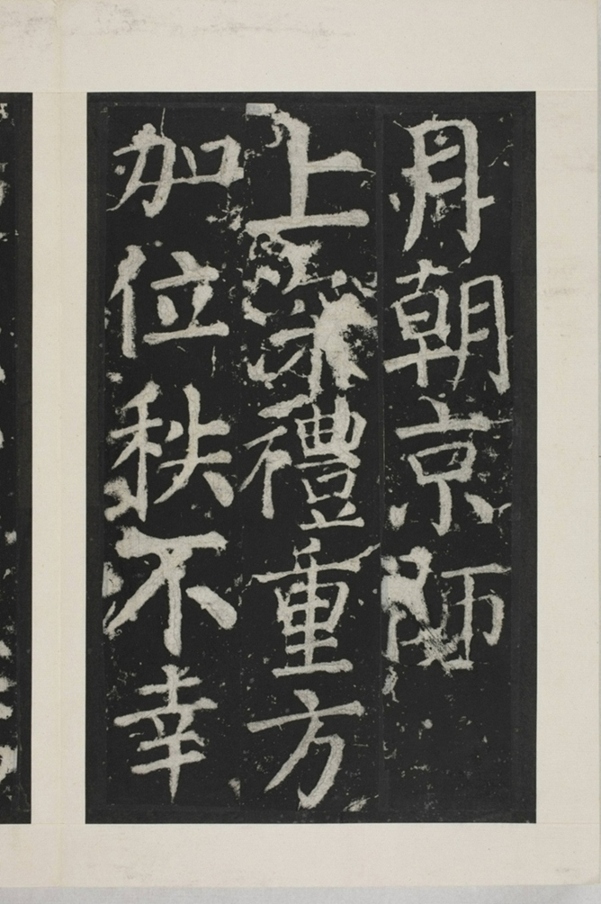 月朝京師
上深禮重方
加位秩不幸